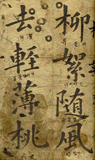 柳絮随風
去輕薄桃